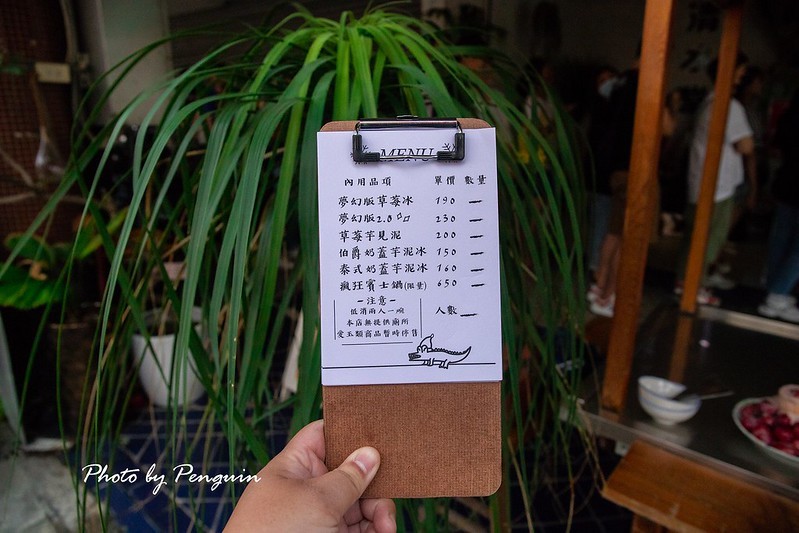 MENU
內用品項 單價 數量
夢幻版草莓冰 190
夢幻版2.0 230
草莓芋見泥 200
伯爵奶蓋芋泥冰 150
泰式奶蓋芋泥冰 160
瘋狂賓士鍋(限量) 650
-注意-
低消兩人一碗
本店無提供廁所
愛玉類商品暫時停售
人數
Photo by Penguin